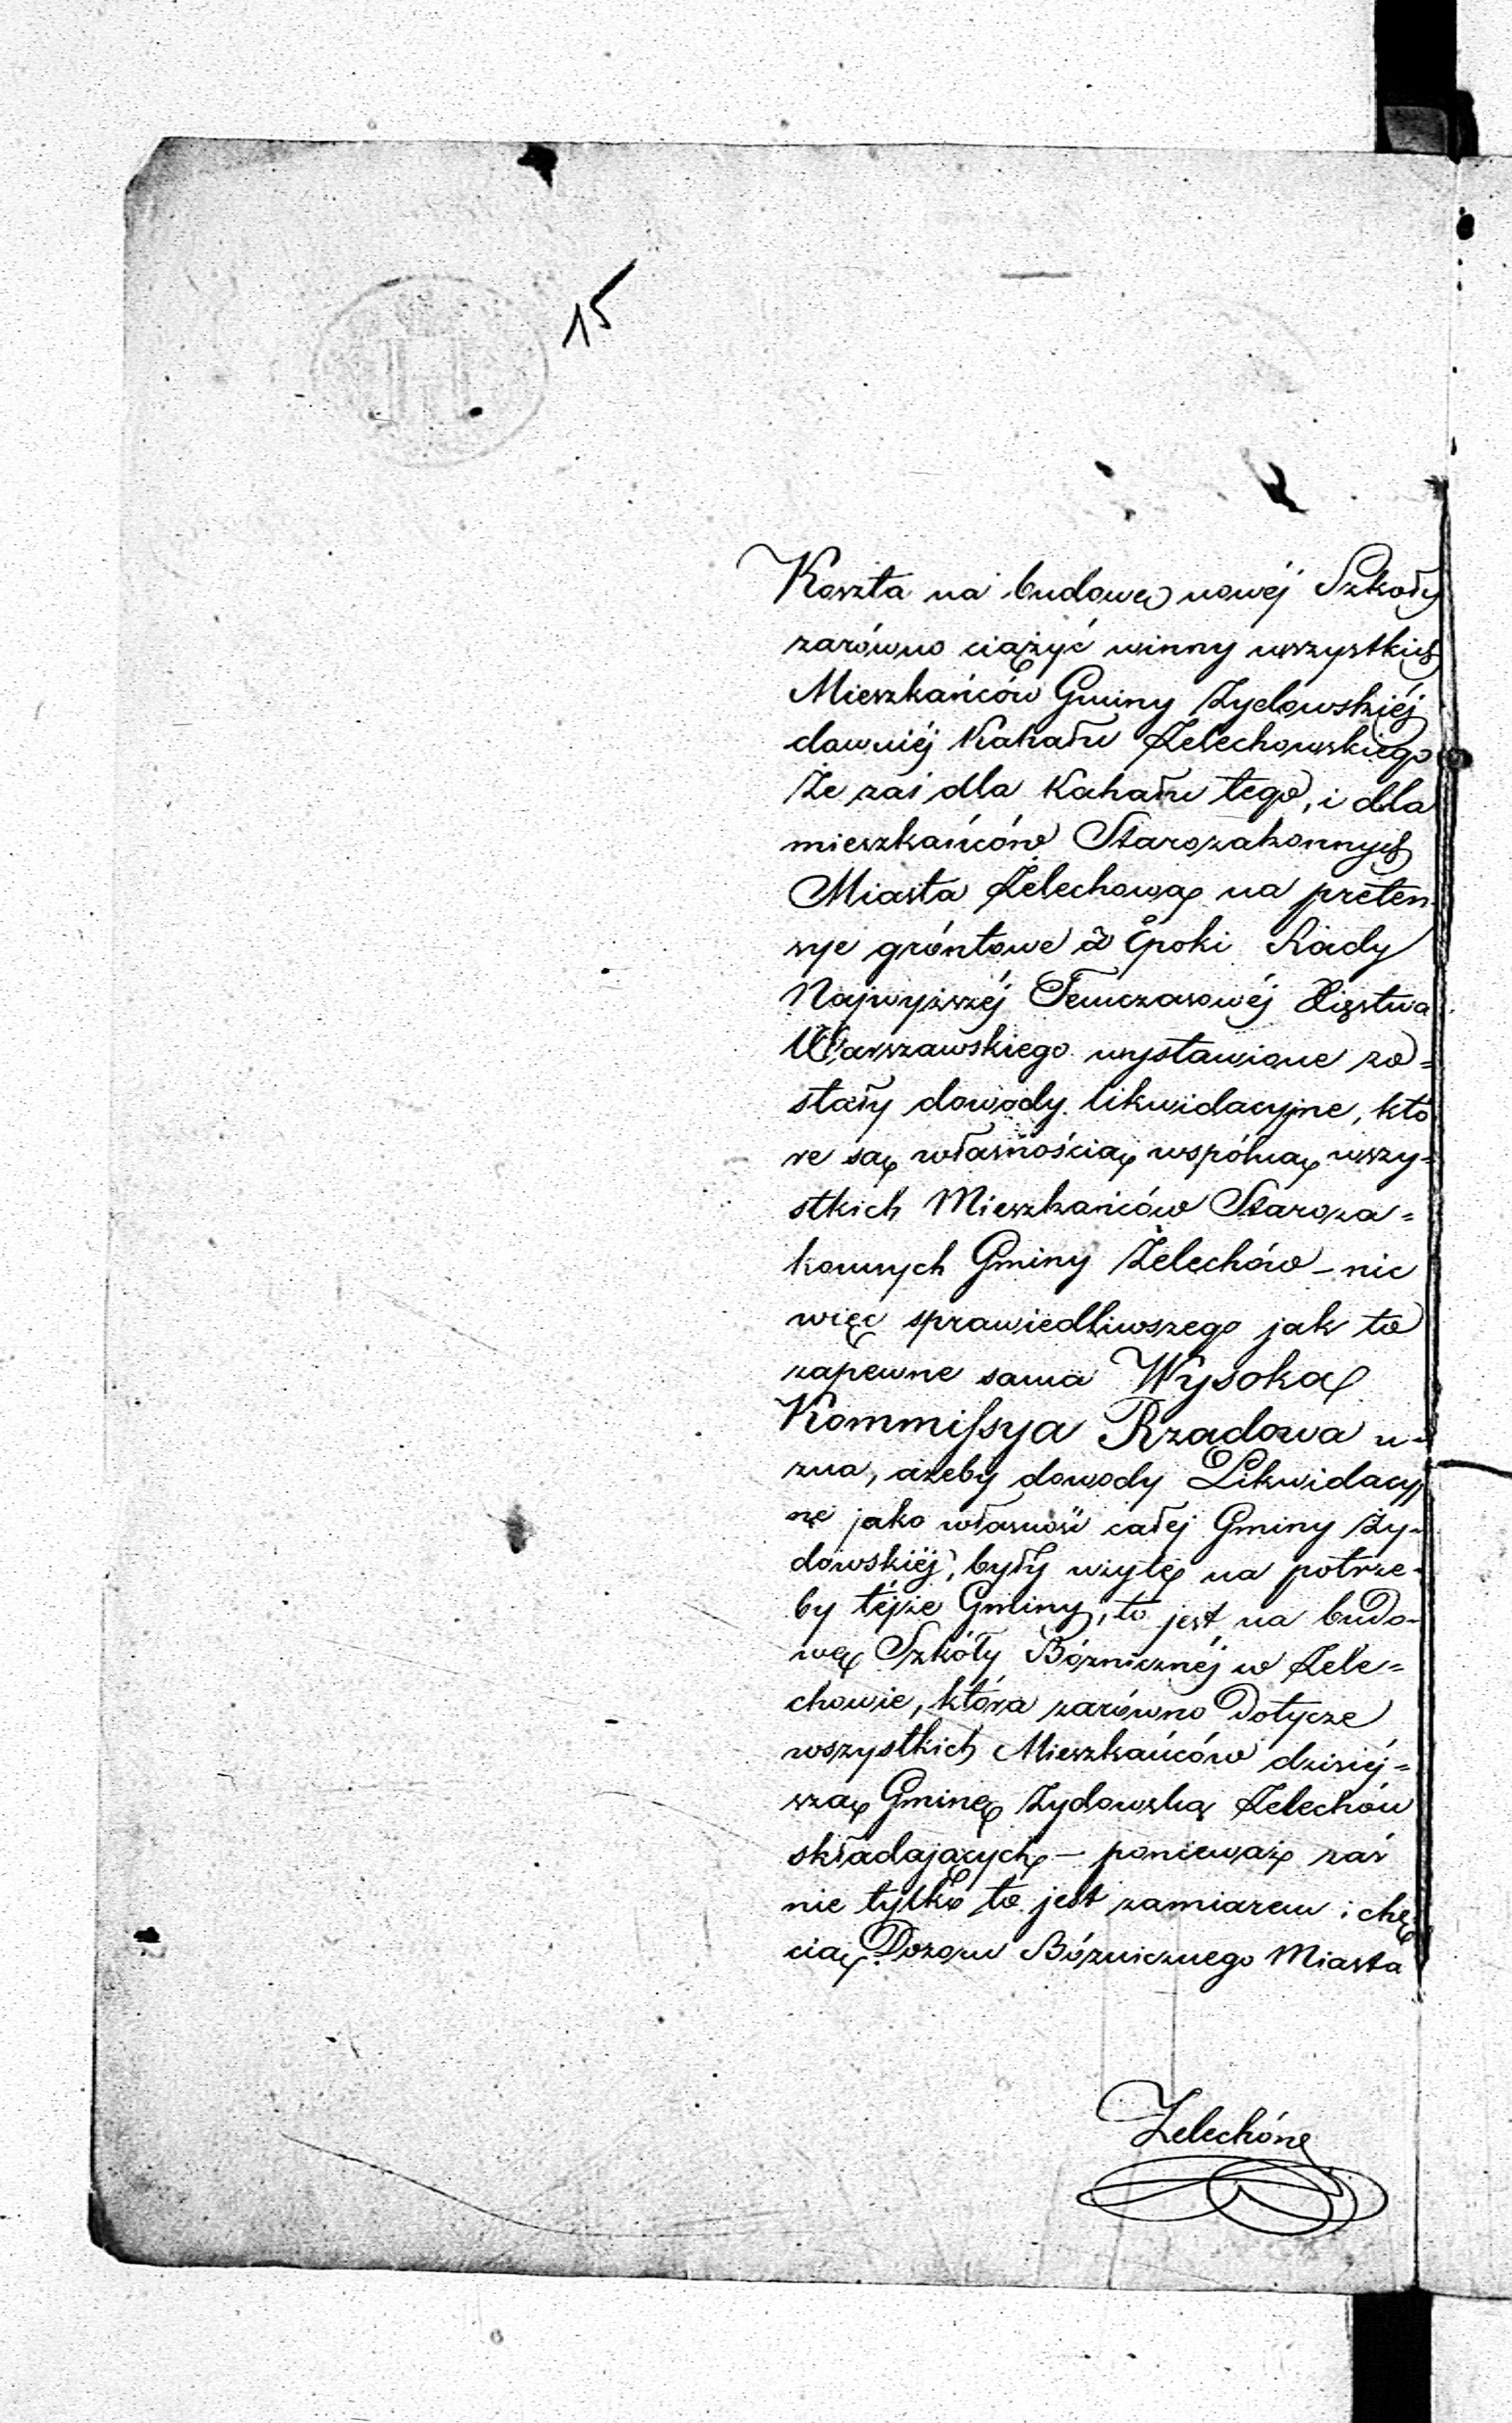 15
Koszta na budowę nowéj Szkoły
zarówno ciążyć winny wszystkich
Mieszkańców Gminy Żydowskiéj
dawniéj Kahału Żelechowskiego
Że zaś dla Kahału tego, i dla
mieszkańców Starozakonnych
Miasta Żelechowa na preten
sye gróntowe z Epoki Rady
Najwyższéj Temczasowéj Xięstwa
Warszawskiego wystawione zo=
stały dowody likwidacyjne, któ
re są własnością wspólną wszy=
stkich Mieszkańców Staroza=
konnych Gminy Żelechów – nic
więc sprawiedliwszego jak to
zapewne sama Wysoka
Kommissya Rządowa u-
zna, ażeby dowody Likwidacyj
ne jako własność całej Gminy Ży-
dowskiéj, były użyte na potrze-
by téjże Gminy, to jest na budo-
wę Szkóły Bóżnicznéj w Żele=
chowie, która zarówno dotycze
wszystkich Mieszkańców dzisiéj=
szą Gminę Żydowską Żelechów
składających – ponieważ zaś
nie tylko to jest zamiarem i chę
cią Dozoru Bóżnicznego Miasta